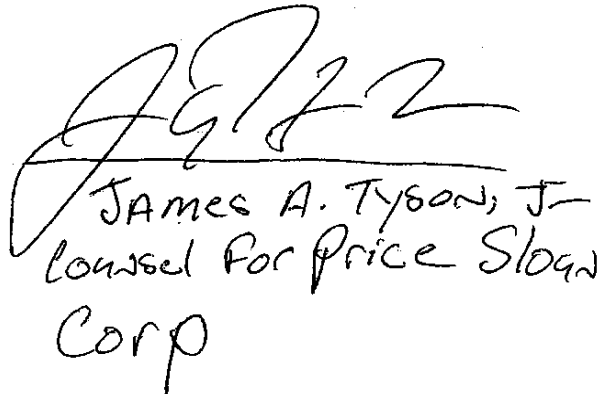 James A. Tyson, Jr
Counsel For Price Sloan
Corp